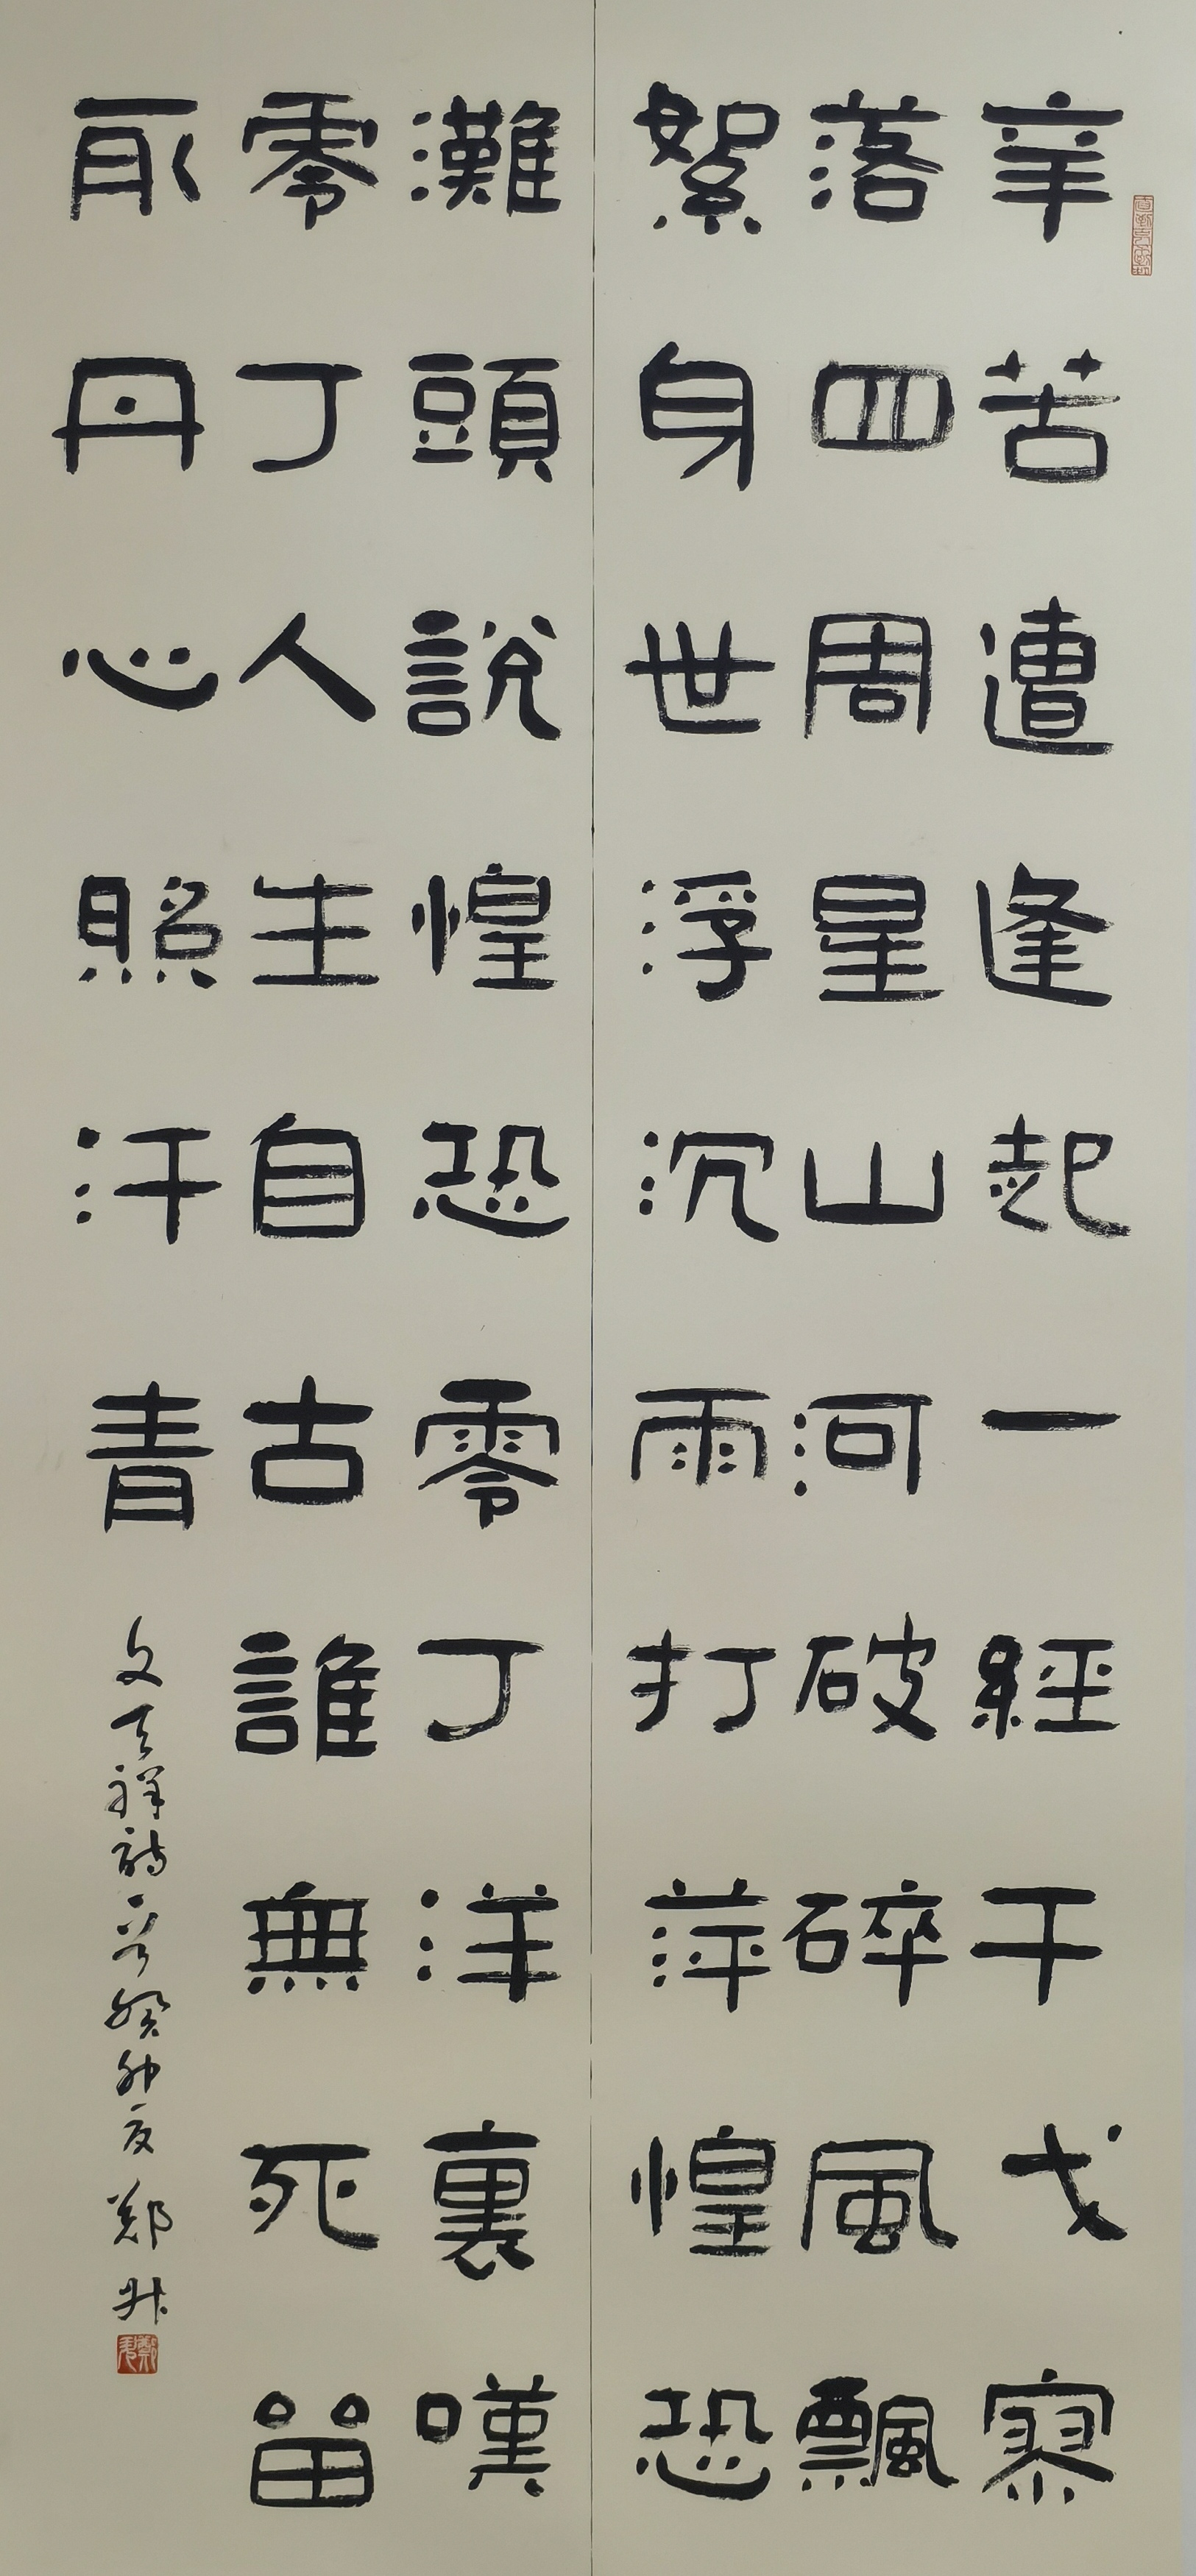 辛苦遭逢起一經干戈寥
落四周星山河破碎風飄
絮身世浮沉雨打萍惶恐
灘頭說惶恐零丁洋裏嘆
零丁人生自古誰無死留
取丹心照汗青
文天祥詩一首癸卯夏鄭